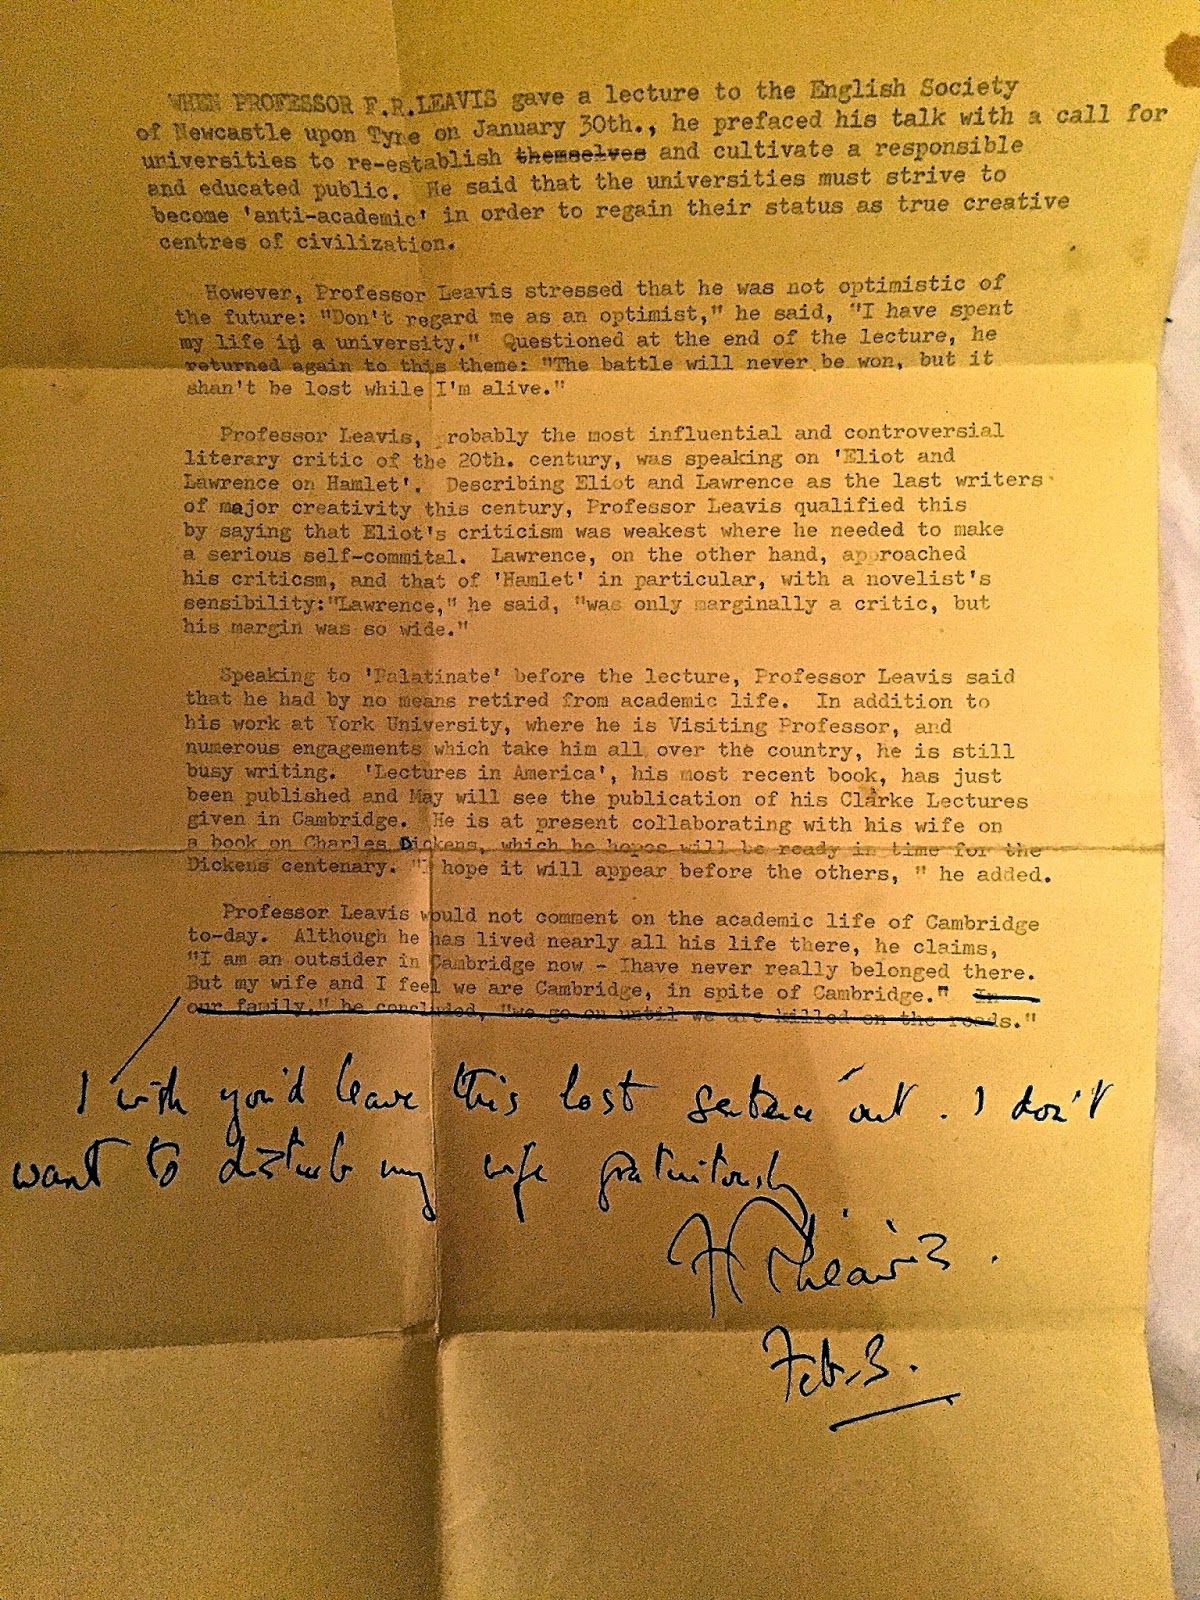 WHEN PROFESSOR F.R.LEAVIS gave a lecture to the English Society
of Newcastle upon Tyne on January 30th., he prefaced his talk with a call for
universities to re-establish themselves and cultivate a responsible
and educated public. He said that the universities must strive to
become 'anti-academic' in order to regain their status as true creative
centres of civilization.
However, Professor Leavis stressed that he was not optimistic of
the future: "Don't regard me as an optimist," he said, "I have spent
my life in a university." Questioned at the end of the lecture, he
returned again to this theme: "The battle will never be won, but it
shan't be lost while I'm alive."
Professor Leavis, probably the most influential and controversial
literary critic of the 20th. century, was speaking on 'Eliot and
Lawrence on Hamlet'. Describing Eliot and Lawrence as the last writers
of major creativity this century, Professor Leavis qualified this
by saying that Eliot's criticism was weakest where he needed to make
a serious self-commital. Lawrence, on the other hand, approached
his criticsm, and that of 'Hamlet' in particular, with a novelist's
sensibility:"Lawrence," he said, "was only marginally a critic, but
his margin was so wide."
Speaking to 'Palatinate' before the lecture, Professor Leavis said
that he had by no means retired from academic life. In addition to
his work at York University, where he is Visiting Professor, and
numerous engagements which take him all over the country, he is still
busy writing. 'Lectures in America', his most recent book, has just
been published and May will see the publication of his Clarke Lectures
given in Cambridge. He is at present collaborating with his wife on
a book on Charles Dickens, which he hopes will be ready in time for the
Dickens centenary. "I hope it will appear before the others, " he added.
Professor Leavis would not comment on the academic life of Cambridge
to-day. Although he has lived nearly all his life there, he claims,
"I am an outsider in Cambridge now - Ihave never really belonged there.
But my wife and I feel we are Cambridge, in spite of Cambridge." In
our family," he concluded, "we go on until we are killed on the roads."
I wish you'd leave this last sentence out. I don't
want to disturb my wife gratuitously
F R Leavis.
Feb. 3.